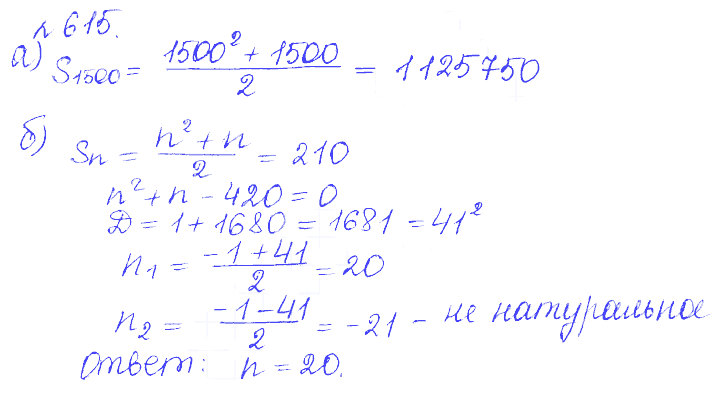 № 615.
а) S₁₅₀₀ = (1500² + 1500)/2 = 1125750
б) Sn = (n² + n)/2 = 210
n² + n - 420 = 0
Д = 1 + 1680 = 1681 = 41²
n₁ = (-1 + 41)/2 = 20
n₂ = (-1 - 41)/2 = -21 - не натуральное
Ответ: n = 20.